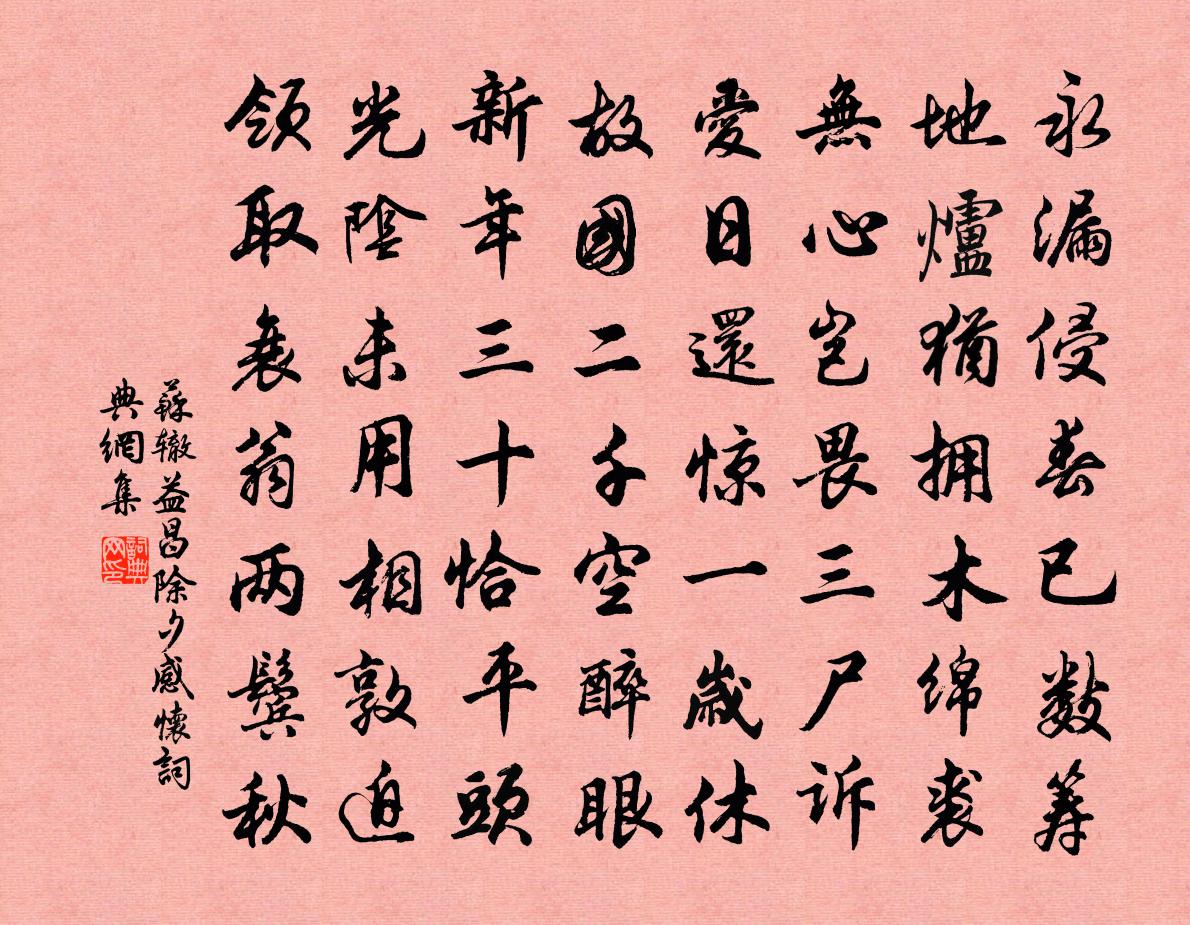 永漏侵春已數筹
地爐猶拥木绵裘
無心岂畏三尸诉
愛日還惊一歲休
故國二千空醉眼
新年三十恰平頭
光陰未用相敦迫
領取衰翁两鬢秋
蘇辙益昌除夕感懷詞
典網集
詞典
网印